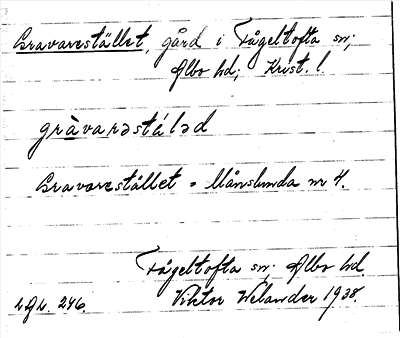 Gravarestället, gård i Fågeltofta sn;
Albo hd; Krist. l.
gràvarəstáləd
Gravarestället = Månslunda nr 4.
Fågeltofta sn; Albo hd.
Viktor Welander 1938.
246.